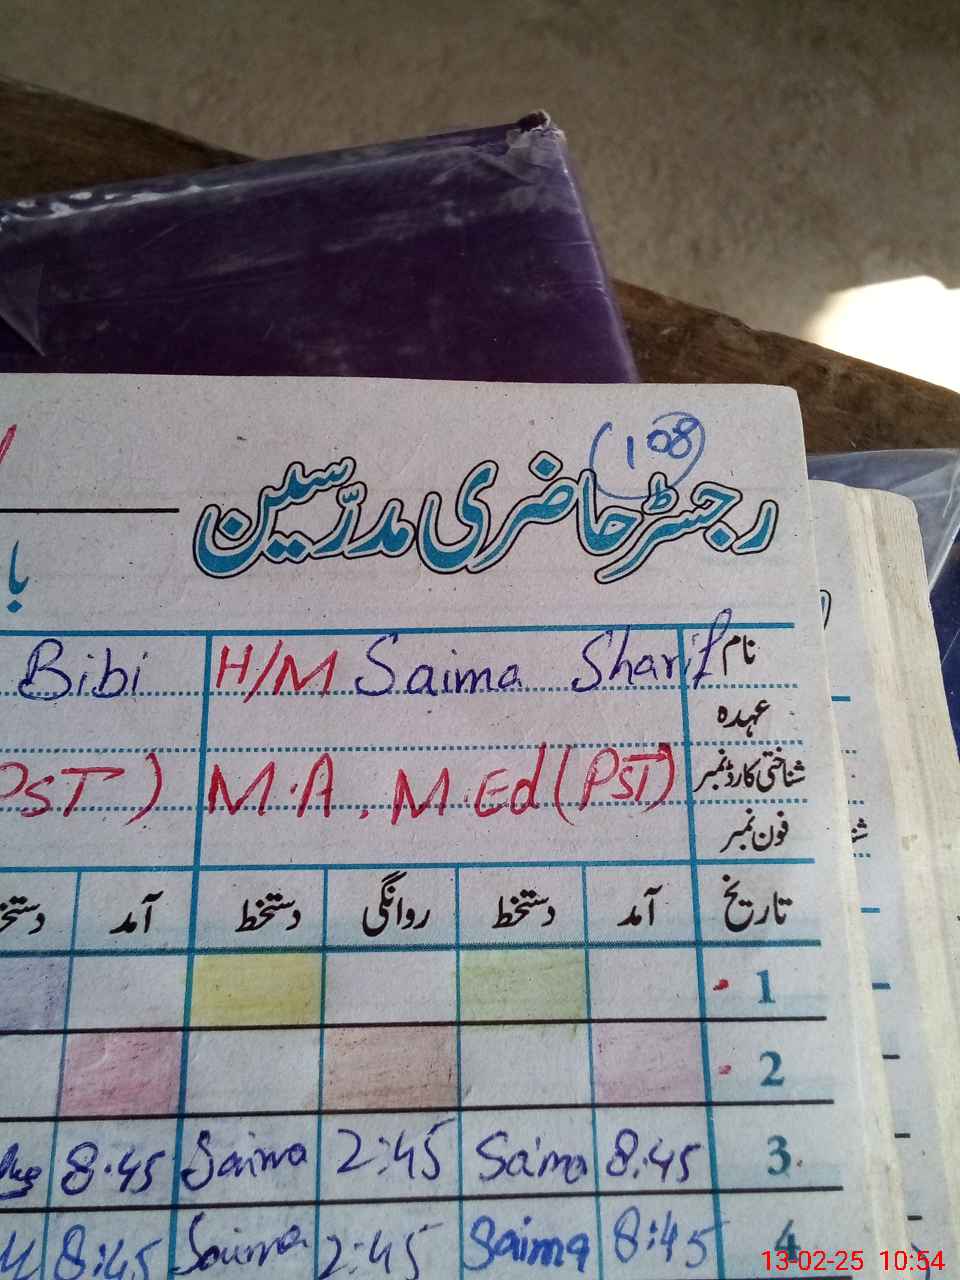 108
رجسٹر حاضری مدرّسین
با
نام H/M Saima Sharif Bibi
عہدہ
شناختی کارڈ نمبر M.A. M.Ed (PST) PST)
فون نمبر
تاریخ آمد دستخط روانگی دستخط آمد
1
2
3 8:45 Saima 2:45 Saima 8:45
4 8:45 Saima 2:45 Saima 8:45
13-02-25 10:54